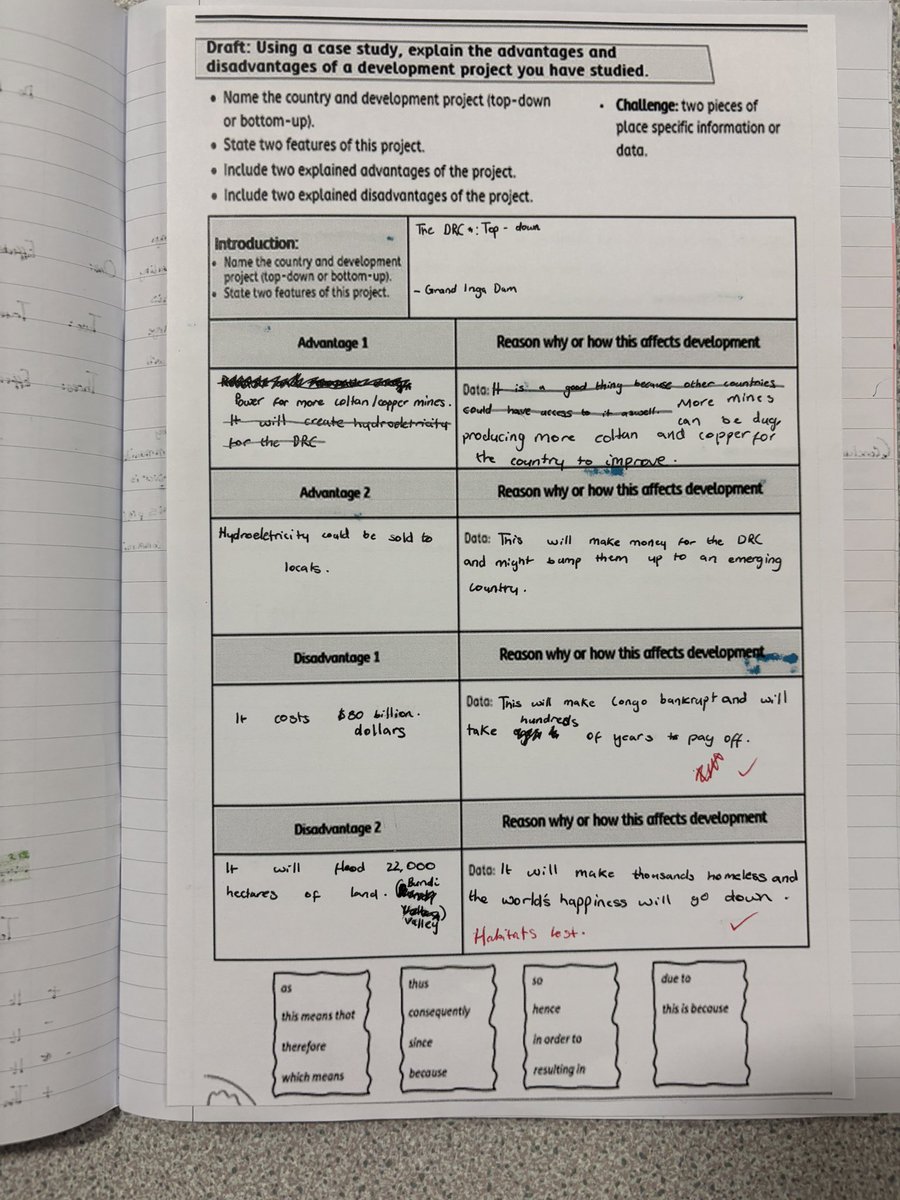 Draft: Using a case study, explain the advantages and
disadvantages of a development project you have studied.
• Name the country and development project (top-down
or bottom-up).
• State two features of this project.
• Include two explained advantages of the project.
• Include two explained disadvantages of the project.
• Challenge: two pieces of
place specific information or
data.
Introduction:
• Name the country and development
project (top-down or bottom-up).
• State two features of this project.
The DRC : Top - down
- Grand Inga Dam
Advantage 1
Reason why or how this affects development
Power for more coltan/copper mines.
It will create hydroeletricity
for the DRC
Data: It is a good thing because other countries
could have access to it aswell. More mines
can be dug,
producing more coltan and copper for
the country to improve.
Advantage 2
Reason why or how this affects development
Hydroeletricity could be sold to
locals.
Data: This will make money for the DRC
and might bump them up to an emerging
country.
Disadvantage 1
Reason why or how this affects development
It costs $80 billion.
dollars
Data: This will make Congo bankrupt and will
hundreds
take of years to pay off.
Disadvantage 2
Reason why or how this affects development
It will flood 22,000
hectares of land. (Bundi
valley)
Data: It will make thousands homeless and
the world's happiness will go down.
Habitats lost.
as
this means that
therefore
which means
thus
consequently
since
because
so
hence
in order to
resulting in
due to
this is because